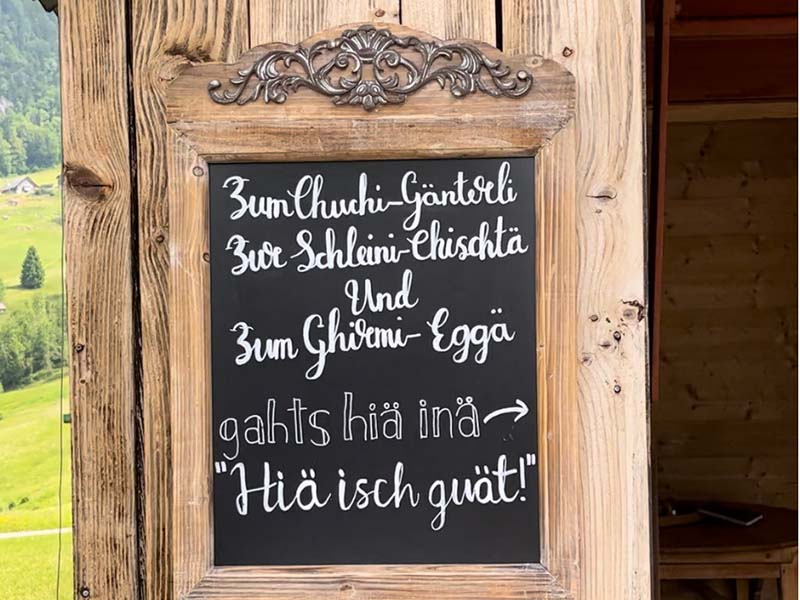 Zum Chuchi-Gänterli
Zur Schleini-Chischtä
Und
Zum Ghirmi-Eggä
gahts hiä inä →
"Hiä isch guät!"